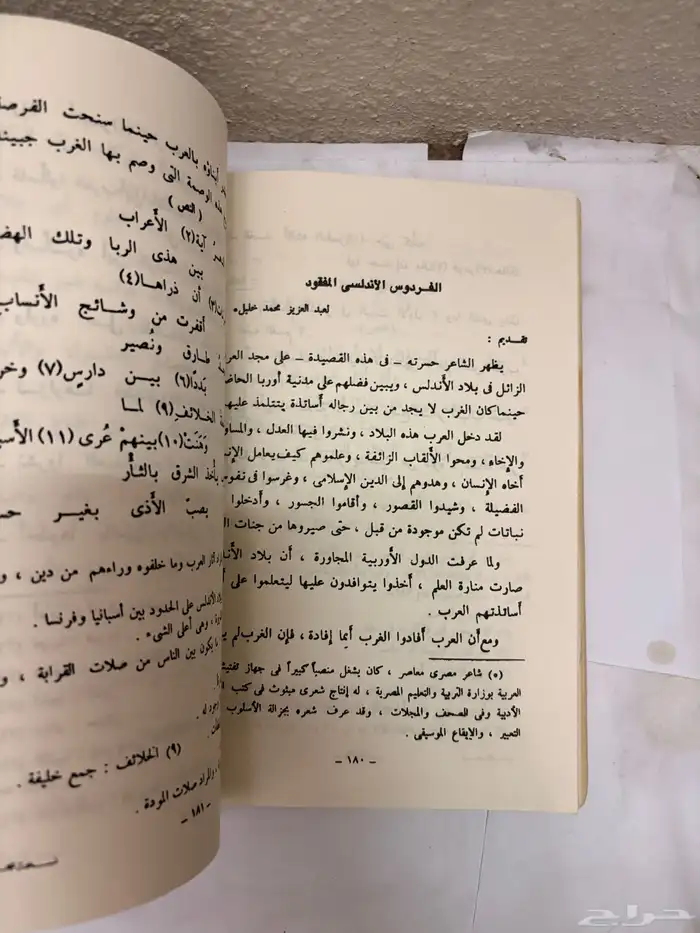 الفردوس الأندلسى المفقود
لعبد العزيز محمد خليل*
تقديم :
يظهر الشاعر حسرته - فى هذه القصيدة - على مجد
الزائل فى بلاد الأندلس ، ويبين فضلهم على مدنية أوربا
حينما كان الغرب لا يجد من بين رجاله أساتذة يتتلمذ
لقد دخل العرب هذه البلاد ، ونشروا فيها العدل ،
والإخاء ، ومحوا الألقاب الزائفة ، وعلموهم كيف يعامل
أخاه الإنسان ، وهدوهم إلى الدين الإسلامى ، وغرسوا فى
الفضيلة ، وشيدوا القصور ، وأقاموا الجسور ، وأدخلوا
نباتات لم تكن موجودة من قبل ، حتى صيروها من جنات
ولما عرفت الدول الأوربية المجاورة ، أن بلاد
صارت منارة العلم ، أخذوا يتوافدون عليها ليتعلموا على
أساتذتهم العرب .
ومع أن العرب أفادوا الغرب أيما إفادة ، فإن الغرب لم
(*) شاعر مصرى معاصر ، كان يشغل منصباً كبيراً فى جهاز
العربية بوزارة التربية والتعليم المصرية ، له إنتاج شعرى مبثوث فى كتب
الأدبية وفى الصحف والمجلات ، وقد عرف شعره بجزالة الأسلوب
التعبير ، والإيقاع الموسيقى .
- ١٨٠ -
أبناؤه بالعرب حينما سنحت
الوصمة التى وصم بها الغرب
(النص)
آية(٢) الأعراب
بين هذى الربا وتلك
أن ذراها(٤)
أقفرت من وشائج
طارق ونُصير
بَدَدًا(٦) بين دارسٍ(٧)
الخلائفِ(٩) لما
وَهَنَتْ(١٠) بينهمْ عُرى(١١)
يأخذ الشرق بالثأر
يصبّ الأذى بغير
العرب وما خلفوه وراءهم من دين ،
الأندلس على الحدود بين أسبانيا وفرنسا .
، وهى أعلى الشىء .
يكون بين الناس من صلات القرابة ،
(٩) الخلائف : جمع خليفة .
والمراد صلات المودة .
- ١٨١ -
حراج